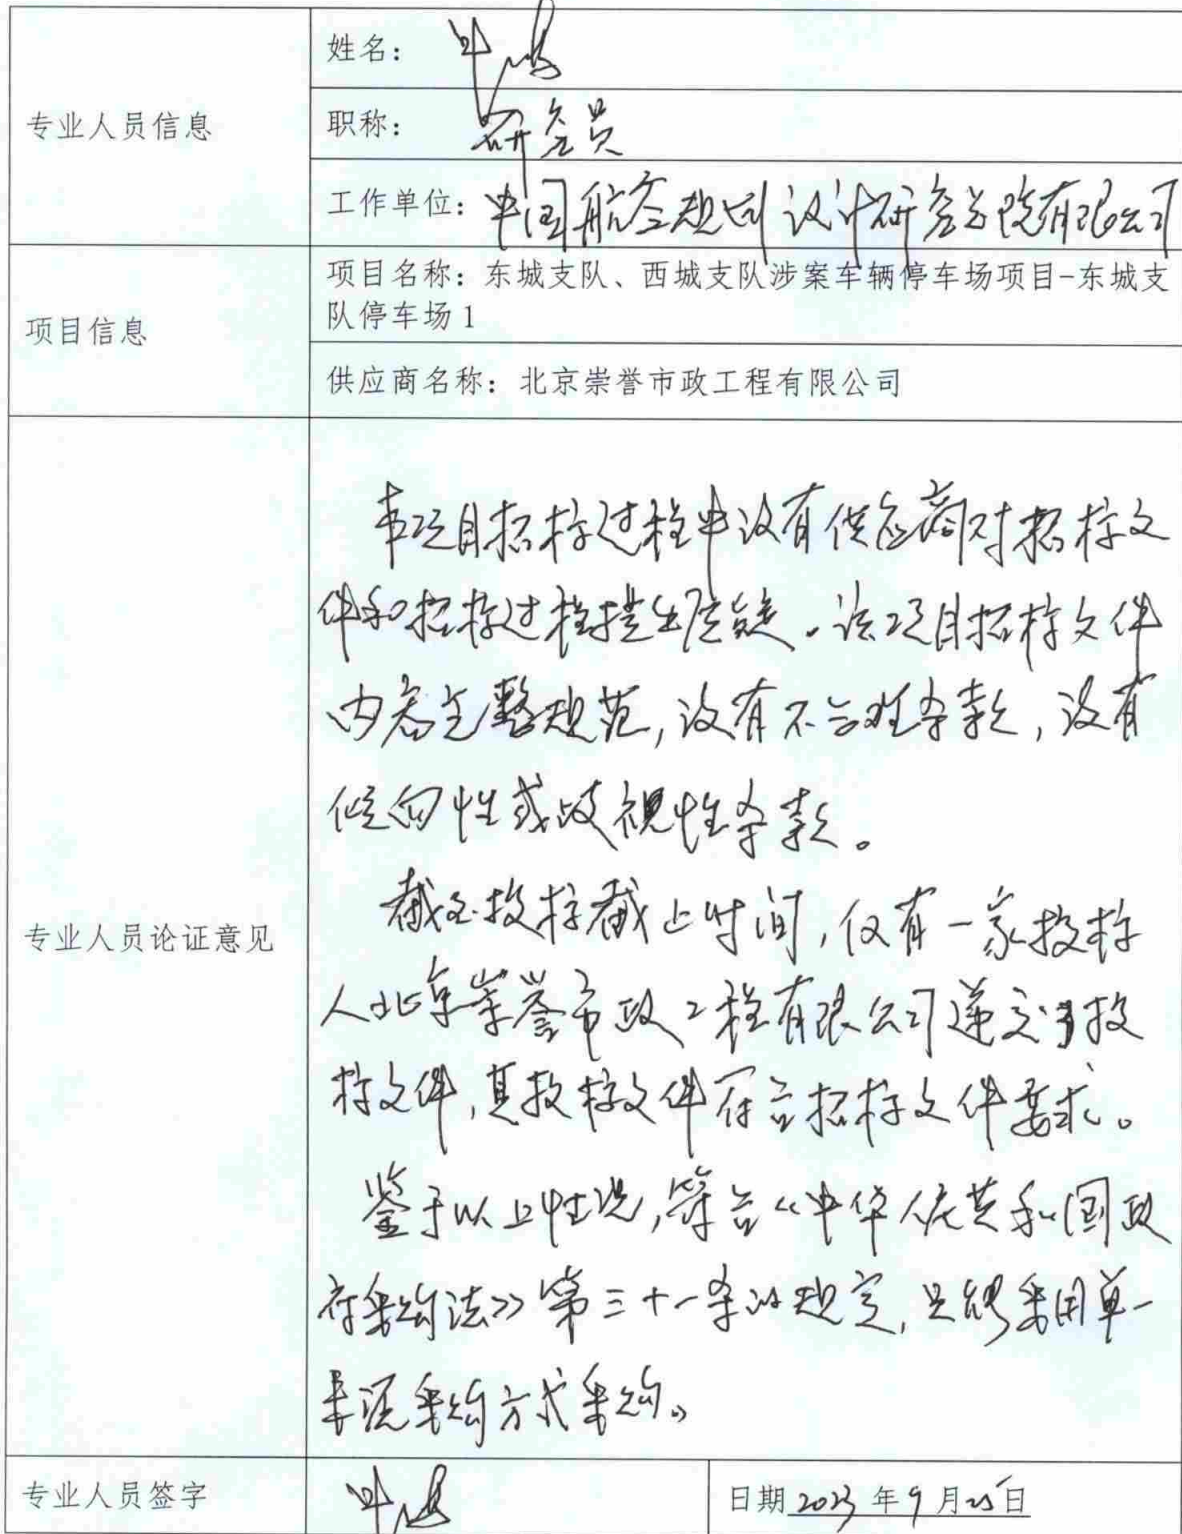 专业人员信息
姓名：叶鸿
职称：研究员
工作单位：中国航空规划设计研究总院有限公司
项目信息
项目名称：东城支队、西城支队涉案车辆停车场项目-东城支
队停车场1
供应商名称：北京崇誉市政工程有限公司
专业人员论证意见
本项目招标过程中没有供应商对招标文
件和招标过程提出质疑。该项目招标文件
内容完整规范，没有不合理条款，没有
倾向性或歧视性条款。
截至投标截止时间，仅有一家投标
人北京崇誉市政工程有限公司递交了投
标文件，其投标文件符合招标文件要求。
鉴于以上情况，符合《中华人民共和国政
府采购法》第三十一条的规定，只能采用单一
来源采购方式采购。
专业人员签字
日期2023年9月25日